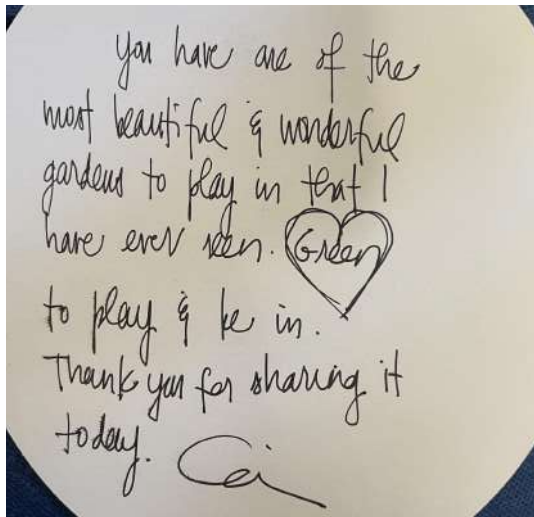 You have one of the
most beautiful & wonderful
gardens to play in that I
have ever seen. Green
to play & be in.
Thank you for sharing it
today.